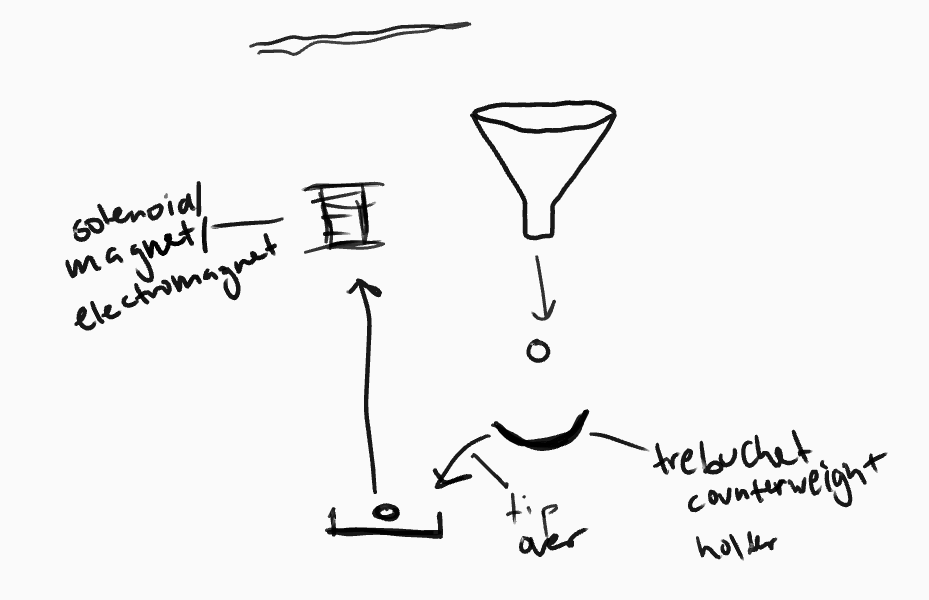 solenoid/
magnet/
electromagnet
trebuchet
counterweight
holder
tip
over